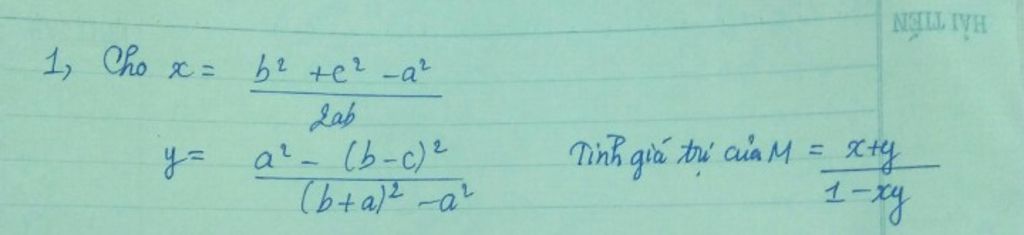 HẢI TIẾN
1, Cho x = b² + c² - a² / 2ab
y = a² - (b - c)² / (b + a)² - a²
Tính giá trị của M = x+y / 1 - xy